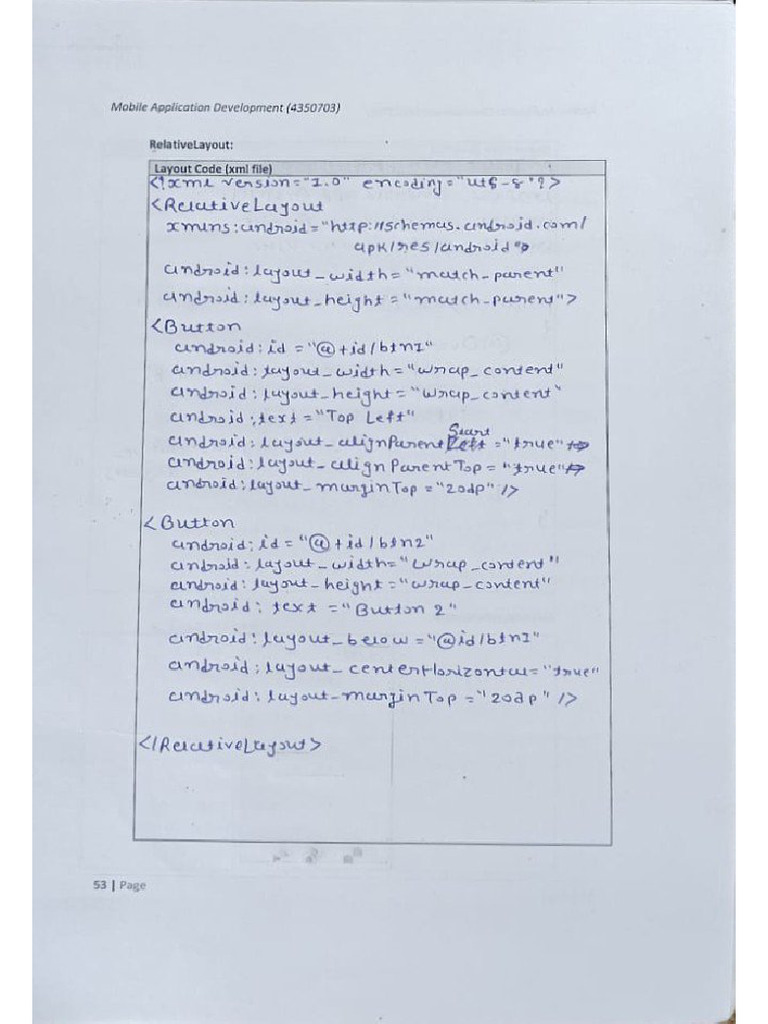 Mobile Application Development (4350703)
RelativeLayout:
Layout Code (xml file)
<?xml version="1.0" encoding="utf-8"?>
<RelativeLayout
xmlns:android="http://schemas.android.com/
apk/res/android">
android:layout_width="match_parent"
android:layout_height="match_parent">
<Button
android:id="@+id/btn1"
android:layout_width="wrap_content"
android:layout_height="wrap_content"
android:text="Top Left"
Start
android:layout_alignParentLeft="true"
android:layout_alignParentTop="true"
android:layout_marginTop="20dp"/>
<Button
android:id="@+id/btn2"
android:layout_width="wrap_content"
android:layout_height="wrap_content"
android:text="Button 2"
android:layout_below="@id/btn1"
android:layout_centerHorizontal="true"
android:layout_marginTop="20dp"/>
</RelativeLayout>
53 | Page